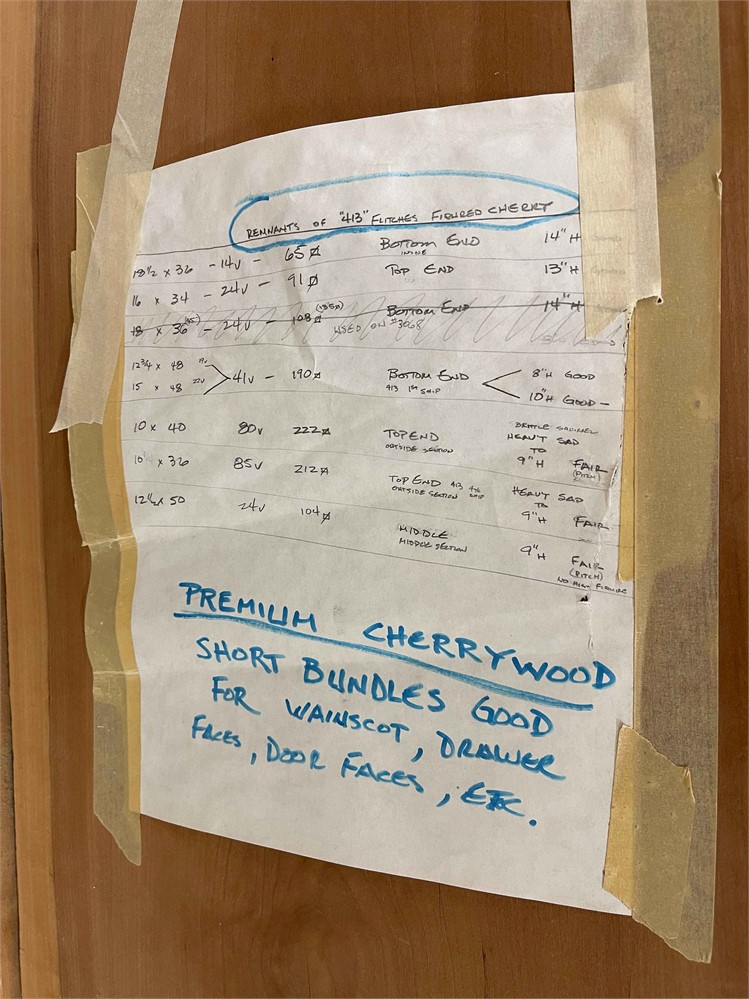 REMNANTS OF "413" FLITCHES FIGURED CHERRY
18 1/2 x 36 - 14v - 65 ⌀ BOTTOM END 14" H
INSIDE
16 x 34 - 24v - 91 ⌀ TOP END 13" H
18 x 36 - 24v - 108 ⌀ BOTTOM END 14" H
USED ON #3068
12 3/4 x 48
15 x 48 22v
41v - 190 ⌀ BOTTOM END 8"H GOOD
413 1ST SHIP 10"H GOOD -
10 x 40 80v 222 ⌀ TOP END HEAVY SAP
OUTSIDE SECTION TO
9"H FAIR
(PITCH)
10 x 36 85v 212 ⌀ TOP END 413 SHIP HEAVY SAP
OUTSIDE SECTION TO
9"H FAIR
12 1/2 x 50 24v 104 ⌀ MIDDLE 9"H FAIR
MIDDLE SECTION (PITCH)
NO HIGH FIGURE
PREMIUM CHERRYWOOD
SHORT BUNDLES GOOD
FOR WAINSCOT, DRAWER
FACES, DOOR FACES, ETC.